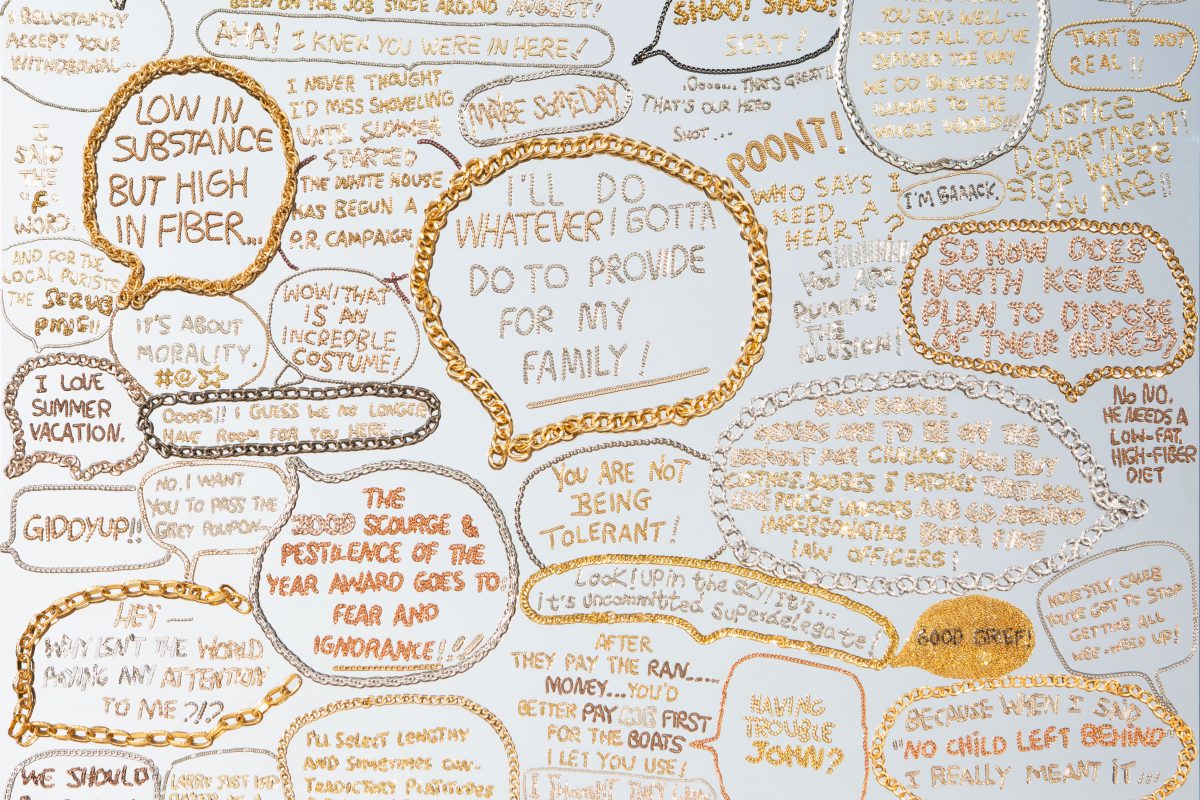 I RELUCTANTLY
ACCEPT YOUR
WITHDRAWAL...
BEEN ON THE JOB SINCE AROUND AUGUST!
AHA! I KNEW YOU WERE IN HERE!
SHOO! SHOO!
SCAT!
YOU SAY? WELL...
FIRST OF ALL, YOU'VE
EXPOSED THE WAY
WE DO BUSINESS IN
TO THE
WHOLE WORLD!!!
THAT'S NOT
REAL!!
LOW IN
SUBSTANCE
BUT HIGH
IN FIBER...
I NEVER THOUGHT
I'D MISS SHOVELING
UNTIL SUMMER
STARTED
THE WHITE HOUSE
HAS BEGUN A
P.R. CAMPAIGN
MAYBE SOMEDAY
THAT'S GREAT!
THAT'S OUR HERO
SHOT...
POONT!
WHO SAYS I
NEED A
HEART?
JUSTICE
DEPARTMENT!
STOP WHERE
YOU ARE!!
I'M BARACK
I
SAID
THE
"F"
WORD.
AND FOR THE
LOCAL PURISTS
THE
IT'S ABOUT
MORALITY,
#@
WOW! THAT
IS AN
INCREDBLE
COSTUME!
I'LL DO
WHATEVER I GOTTA
DO TO PROVIDE
FOR MY
FAMILY!
YOU ARE
RUINING
THE
ILLUSION!
SO HOW DOES
NORTH KOREA
PLAN TO DISPOSE
OF THEIR NUKES?
I LOVE
SUMMER
VACATION.
OOOPS!! I GUESS WE NO LONGER
HAVE ROOM FOR YOU HERE...
NO NO.
HE NEEDS A
LOW-FAT,
HIGH-FIBER
DIET
GIDDYUP!!
NO, I WANT
YOU TO PASS THE
GREY POUPON
THE
SCOURGE &
PESTILENCE OF THE
YEAR AWARD GOES TO:
FEAR AND
IGNORANCE!!!!
YOU ARE NOT
BEING
TOLERANT!
ARE TO BE ON THE
FOR CIVILIANS WHO BUY
CLOTHES, BADGES & PATCHES THAT LOOK
LIKE POLICE UNIFORMS AND GO AROUND
IMPERSONATING BONA FIDE
LAW OFFICERS!
LOOK! UP IN THE SKY! IT'S...
IT'S UNCOMMITTED SUPERDELEGATE!
GOOD GRIEF!
HONESTLY, CALEB
YOU'VE GOT TO STOP
GETTING ALL
HEY—
WHY ISN'T THE WORLD
PAYING ANY ATTENTION
TO ME?!?
AFTER
THEY PAY THE RAN.....
MONEY...YOU'D
BETTER PAY FIRST
FOR THE BOATS
I LET YOU USE!
HAVING
TROUBLE
JOHN?
BECAUSE WHEN I SAID
"NO CHILD LEFT BEHIND"
I REALLY MEANT IT...
WE SHOULD
LARRY JUST HAD
I'LL SELECT LENGTHY
AND SOMETIMES CON-
TRADICTORY PLATITUDES
I THOUGHT THEY